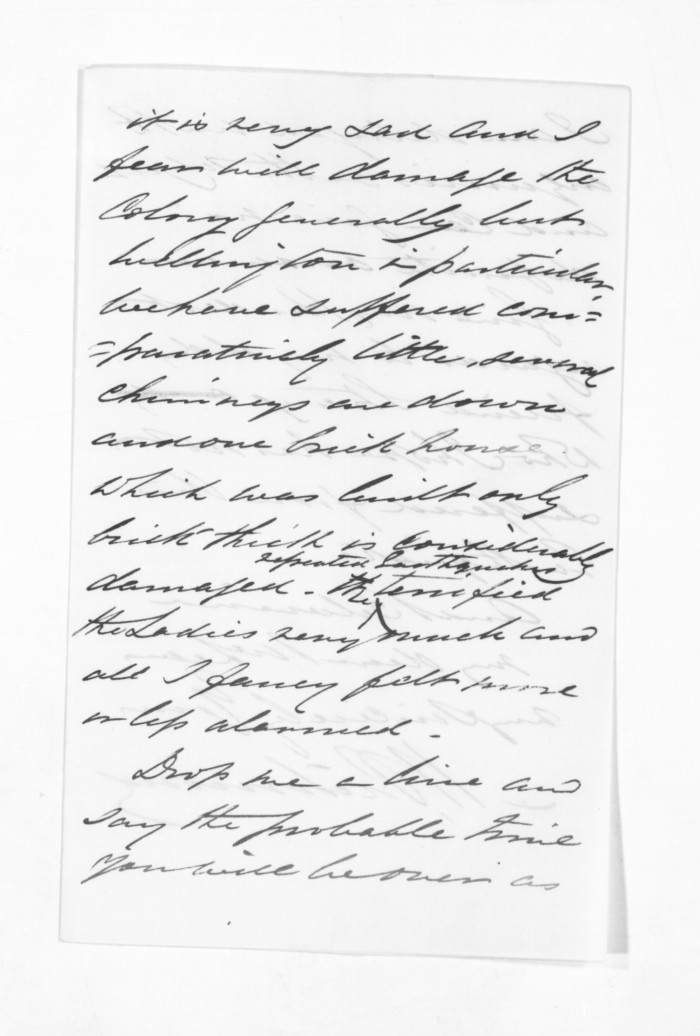 it is very sad and I
fear will damage the
Colony generally but
Wellington in particular
we have suffered com=
=paratively little, several
chimneys are down
and one brick house
which was built only
brick thick is considerably
repeated Earthquakes
damaged - The terrified
the Ladies very much and
all I fancy felt more
or less alarmed -
Drop me a line and
say the probable time
you will be over as